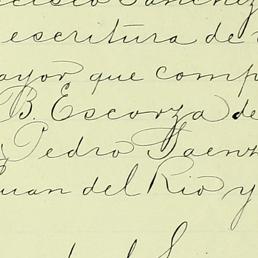 cisco Sanchez
escritura de
ayor que comp
B. Escorza de
Pedro Saenz
Juan del Rio y